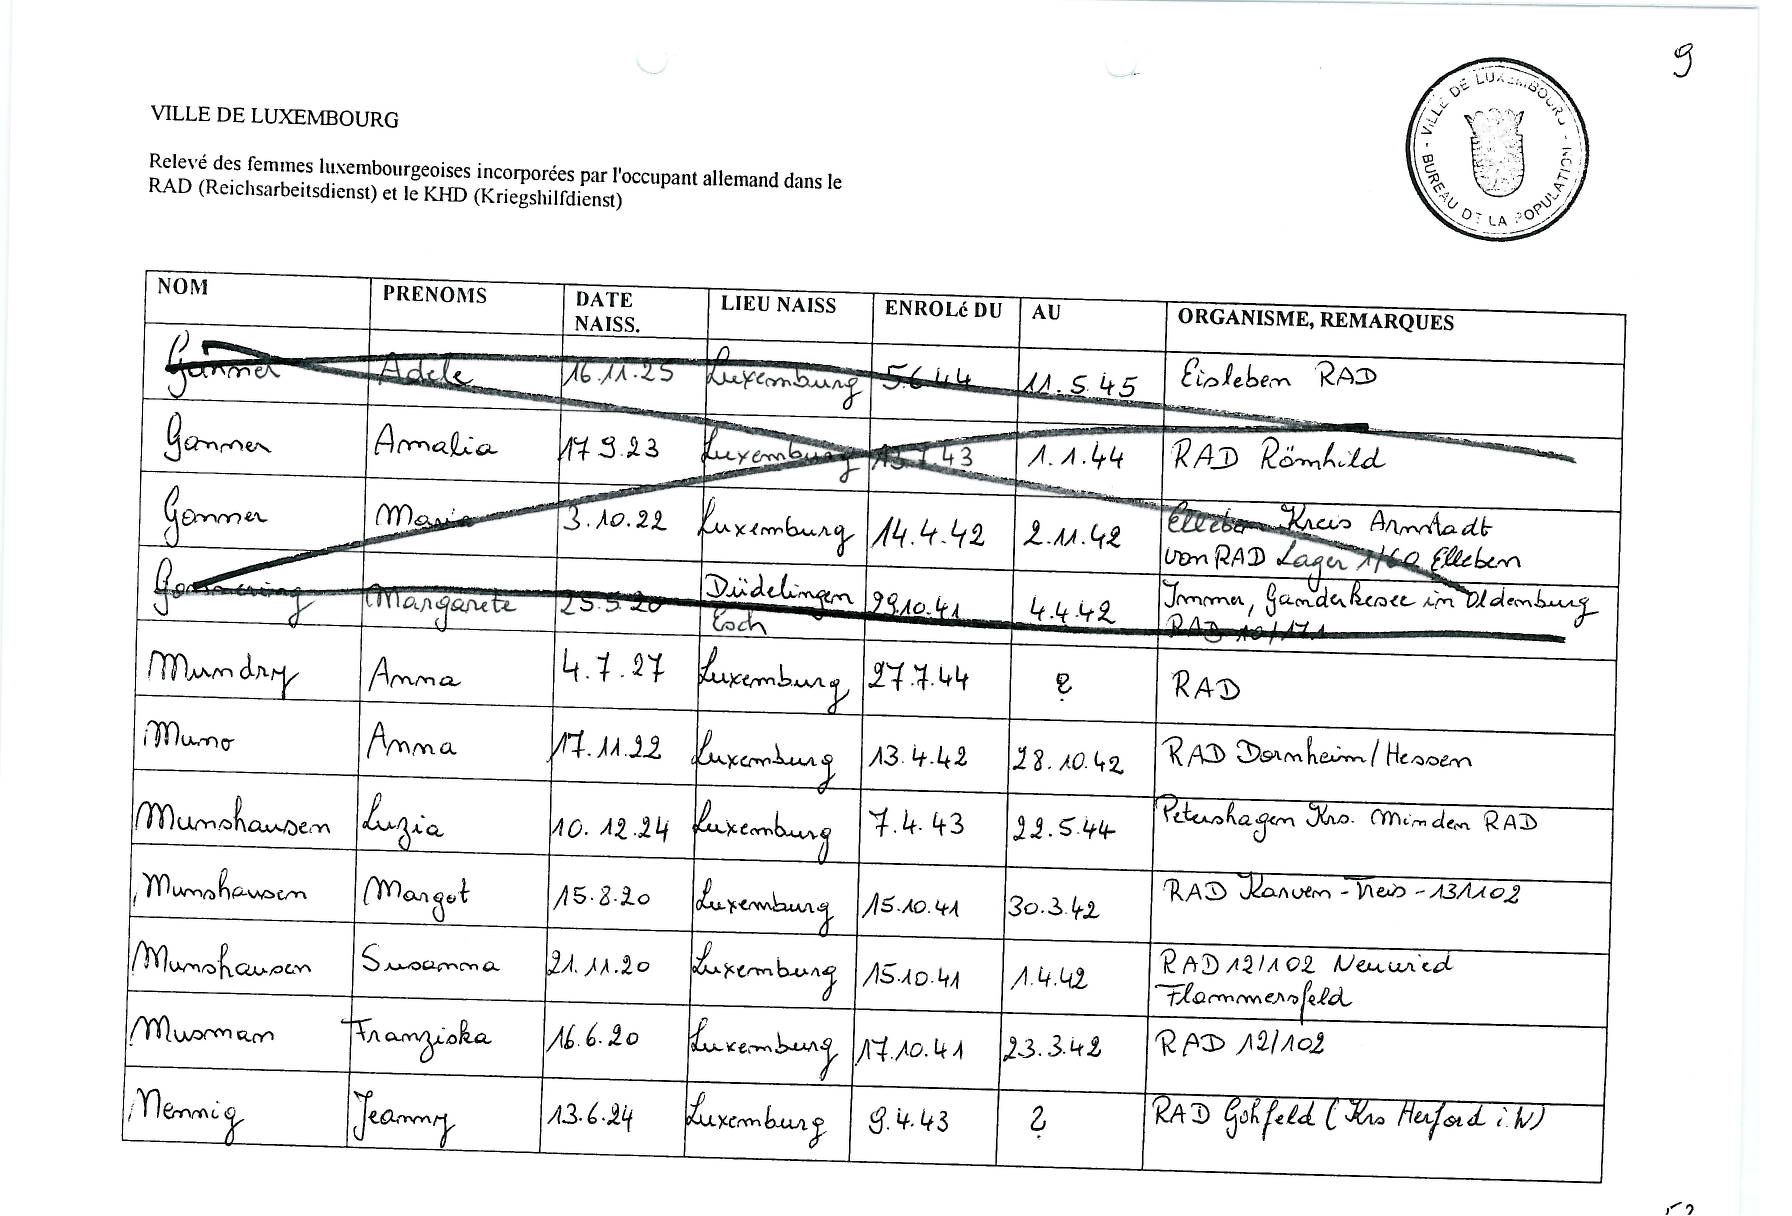 9
VILLE DE LUXEMBOURG
VILLE DE LUXEMBOURG - BUREAU DE LA POPULATION -
Relevé des femmes luxembourgeoises incorporées par l'occupant allemand dans le
RAD (Reichsarbeitsdienst) et le KHD (Kriegshilfdienst)
NOM PRENOMS DATE NAISS. LIEU NAISS ENROLé DU AU ORGANISME, REMARQUES
Gammer Adele 16.11.25 Luxemburg 5.6.44 11.5.45 Eisleben RAD
Gammer Amalia 17 9.23 Luxemburg 13.7.43 1.1.44 RAD Römhild
Gammer Maria 3.10.22 Luxemburg 14.4.42 2.11.42 Elleben Kreis Arnstadt
von RAD Lager 1/60 Elleben
Margarete 25.5.20 Düdelingen 29.10.41 4.4.42 Immer, Ganderkesee in Oldenburg
Esch RAD 10/171
Mundry Anna 4.7.27 Luxemburg 27.7.44 ? RAD
Muno Anna 17.11.22 Luxemburg 13.4.42 28.10.42 RAD Dornheim/Hessen
Munshausen Luzia 10.12.24 Luxemburg 7.4.43 22.5.44 Petershagen Krs. Minden RAD
Munshausen Margot 15.8.20 Luxemburg 15.10.41 30.3.42 RAD Karven-Treis-13/102
Munshausen Susanna 21.11.20 Luxemburg 15.10.41 1.4.42 RAD 12/102 Neuwied
Flammersfeld
Musman Franziska 16.6.20 Luxemburg 17.10.41 23.3.42 RAD 12/102
Nennig Jeanny 13.6.24 Luxemburg 9.4.43 ? RAD Gohfeld (Krs Herford i.W)